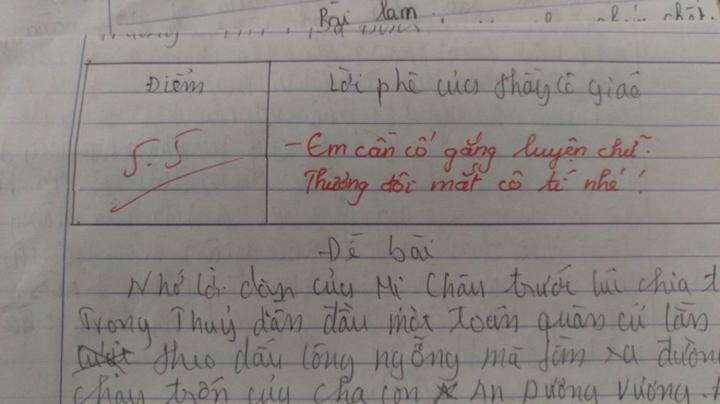 Bài làm
Điểm
Lời phê của thầy cô giáo
5.5
- Em cần cố gắng luyện chữ.
Thương đôi mắt cô tí nhé!
Đề bài
Nhớ lời dặn của Mị Châu trước lúc chia t
Trọng Thuỷ dẫn đầu một toán quân cứ lần
theo dấu lông ngỗng mà tìm ra đườn
chạy trốn của cha con An Dương Vương.